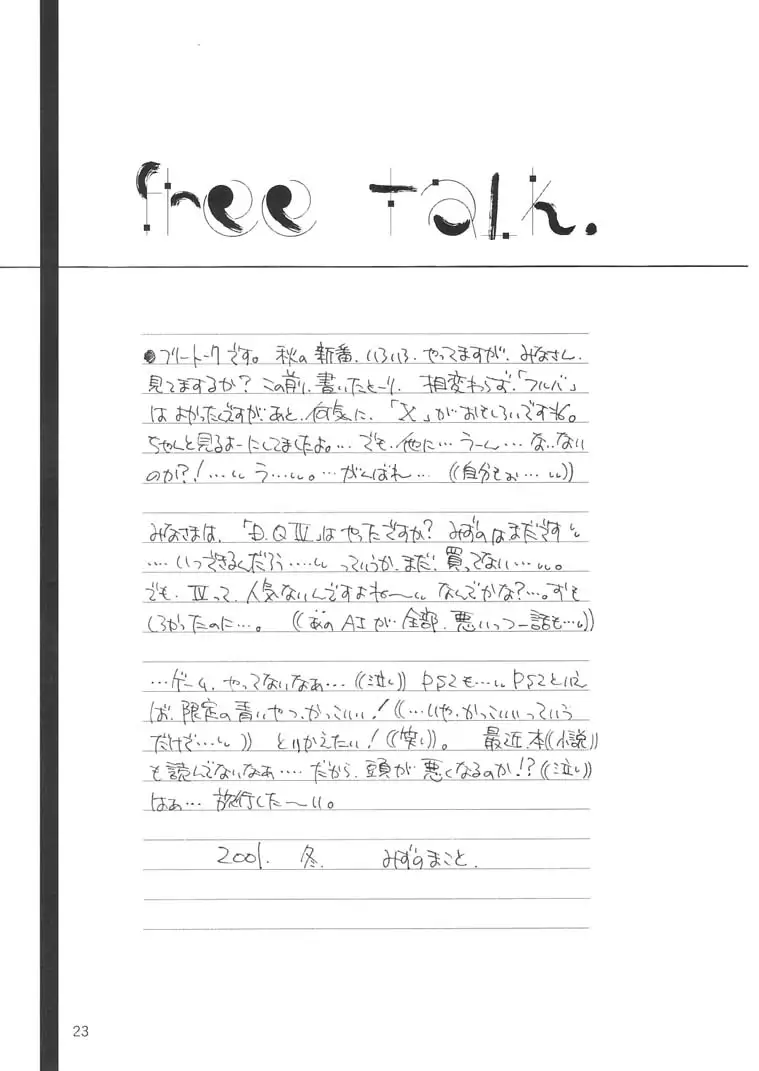 free Talk.
●フリートークです。秋の新番、いろいろ、やってますが、みなさん、
見てますか？この前、書いたとーり、相変わらず、「フルバ」
は よかったんですが、あと、何気に、「X」が おもしろいですね。
ちゃんと見るよーにしてましたよ。…でも、他に…うーん…な、ない
のか？！…い う…い。…がんばれ… （（自分もぉ…い））
みなさまは、「D.Q Ⅳ」は やったですか？みずのはまだですい
…いつできるんだろう……いっていうか、まだ、買ってない…い。
でも、Ⅳって、人気ないんですよね〜い なんでかな？…。おも
しろかったのに…。（（あの AIが…全部、悪いっつー話も…い））
…ゲーム、やってないなぁ…（（泣い））PS2も…い PS2といえ
ば、限定の青いやつ、かっこいい！（（…いや、かっこいいっていう
だけど…い）） とりかえたい！（（笑い））。最近、本（（小説））
も読んでないなぁ…だから、頭が悪くなるのか！？（（泣い））
はぁ…旅行した〜い。
2001. 冬. みずのまこと.
23